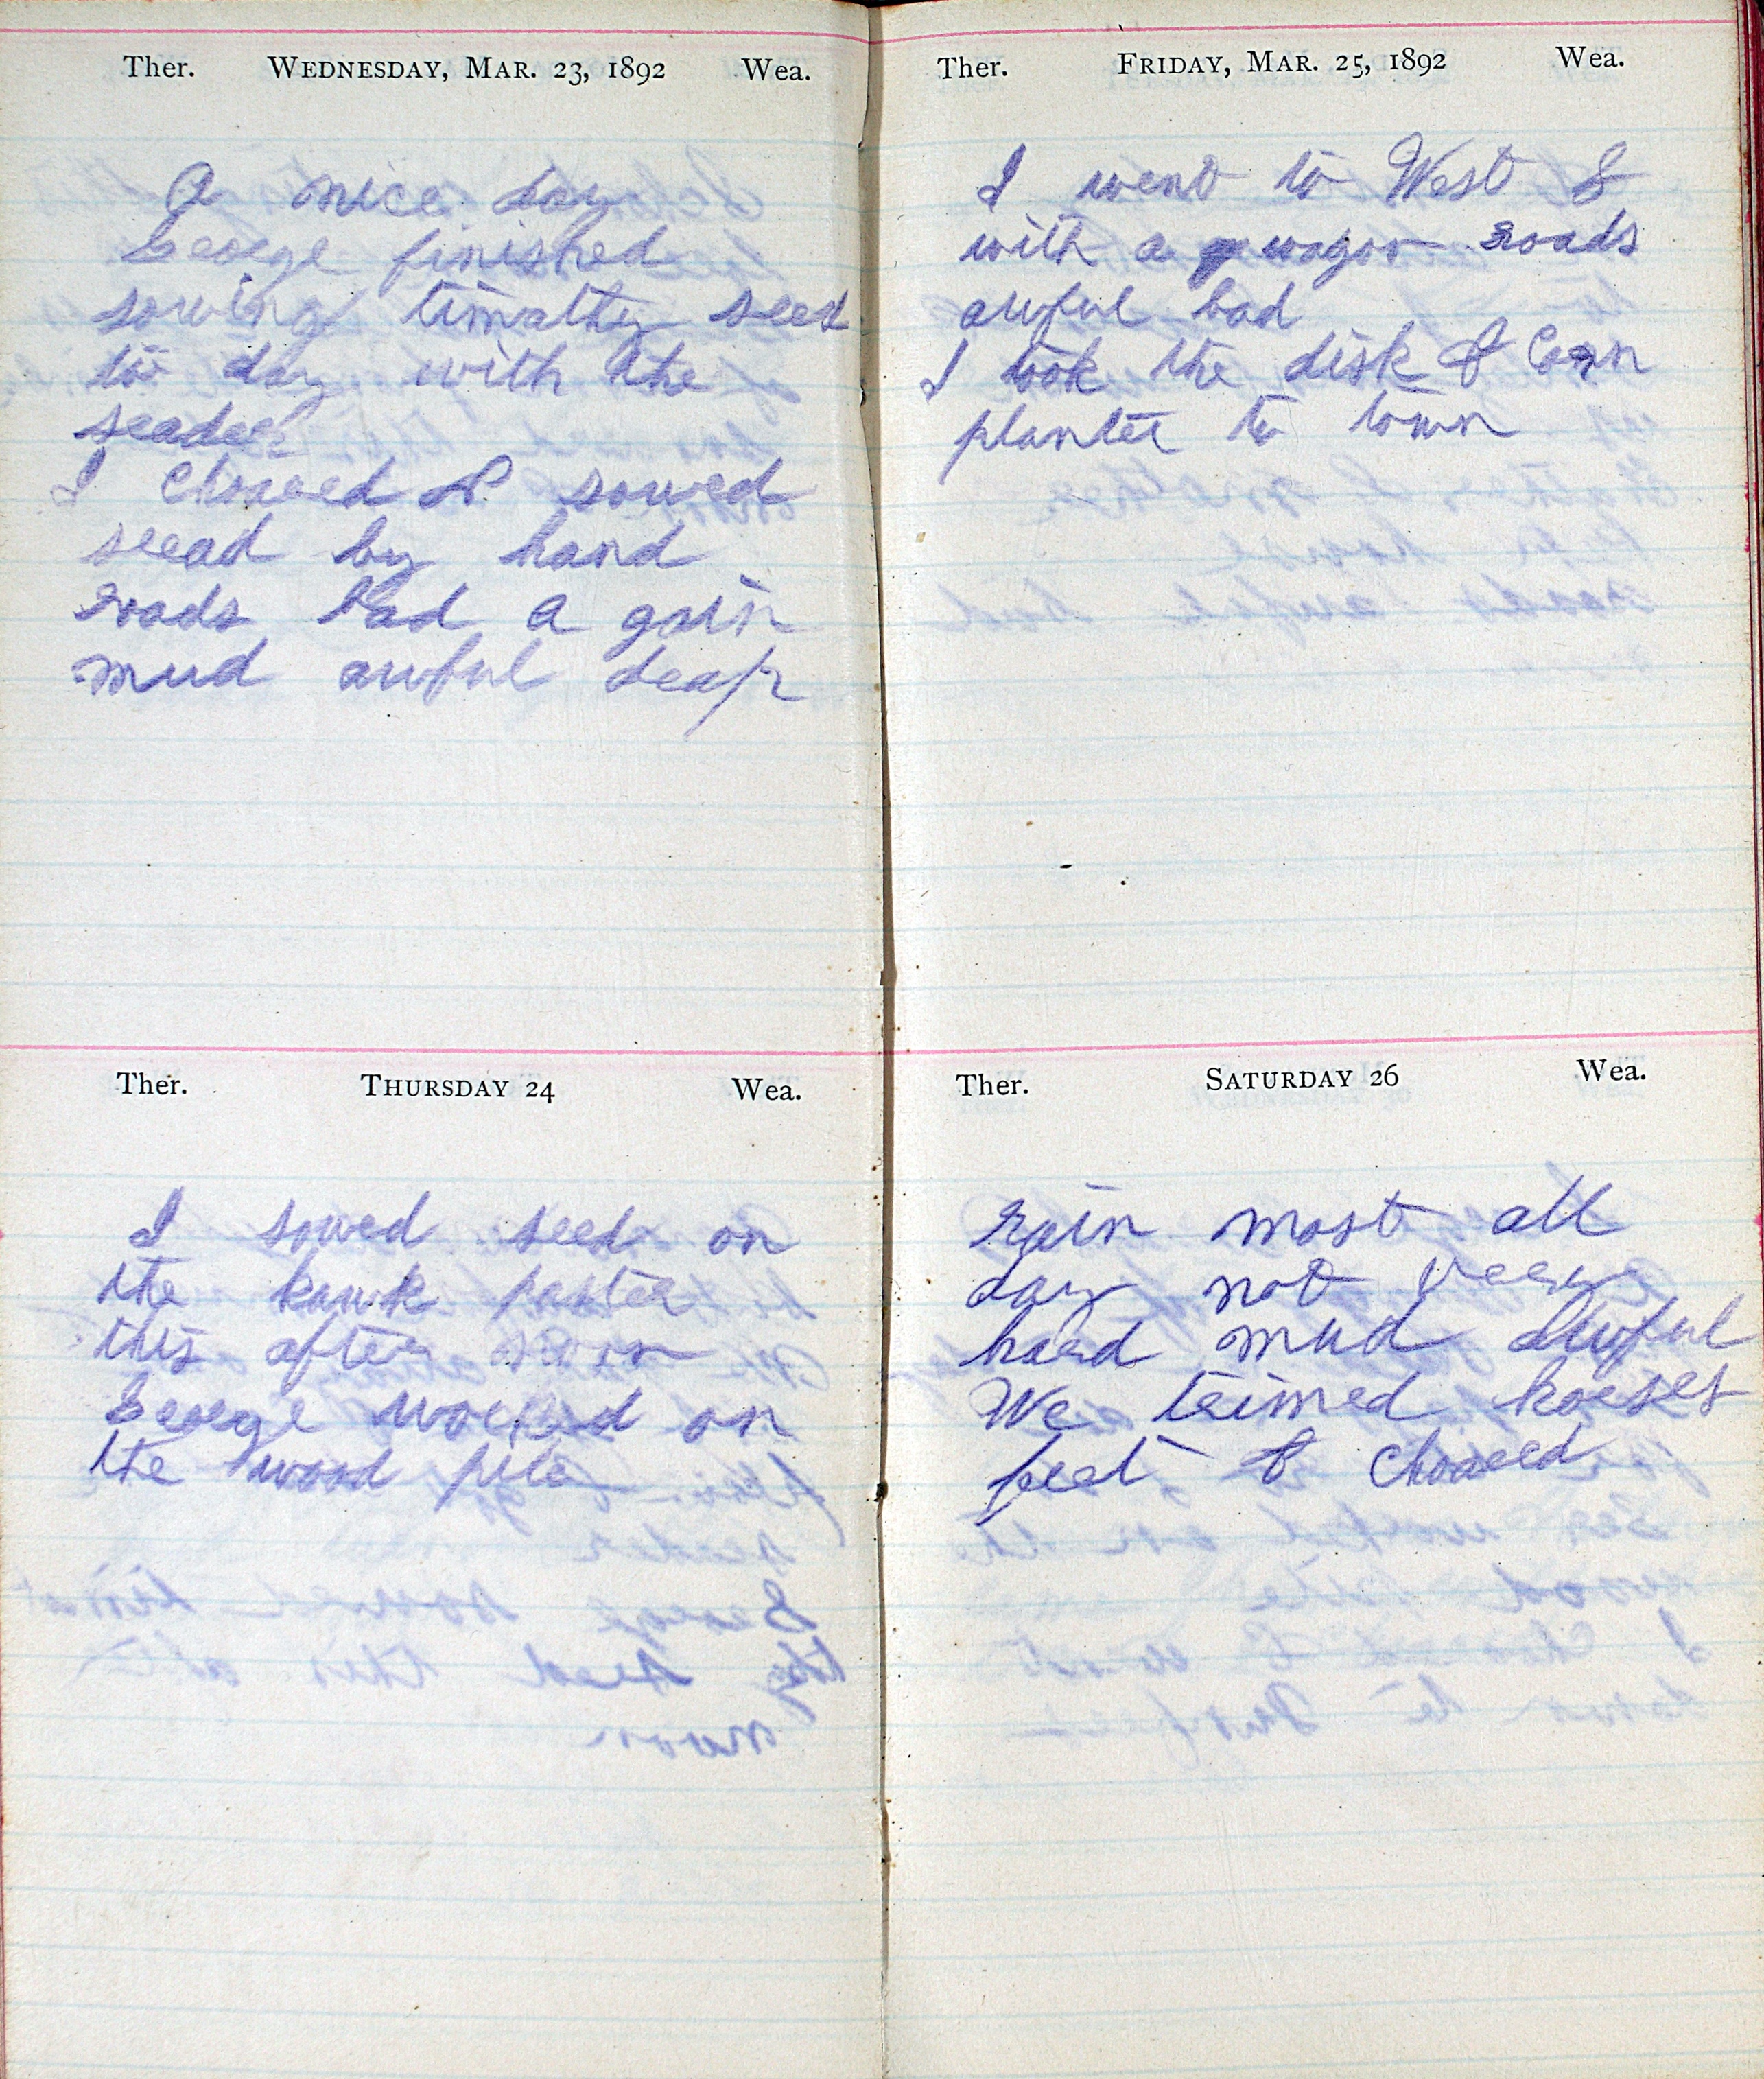 Ther. WEDNESDAY, MAR. 23, 1892 Wea.
A nice day
George finished
sowing timathy seed
to day with the
seader
I Choared & sowed
seead by hand
roads bad a gain
mud awful deap
Ther. THURSDAY 24 Wea.
I sowed seed on
the paster
this after noon
George worked on
the wood pile
Ther. FRIDAY, MAR. 25, 1892 Wea.
I went to West S
with a wagon roads
awful bad
I took the disk & Corn
planter to town
Ther. SATURDAY 26 Wea.
rain most all
day not very
hard mud awful
We trimed horses
feet & Choared